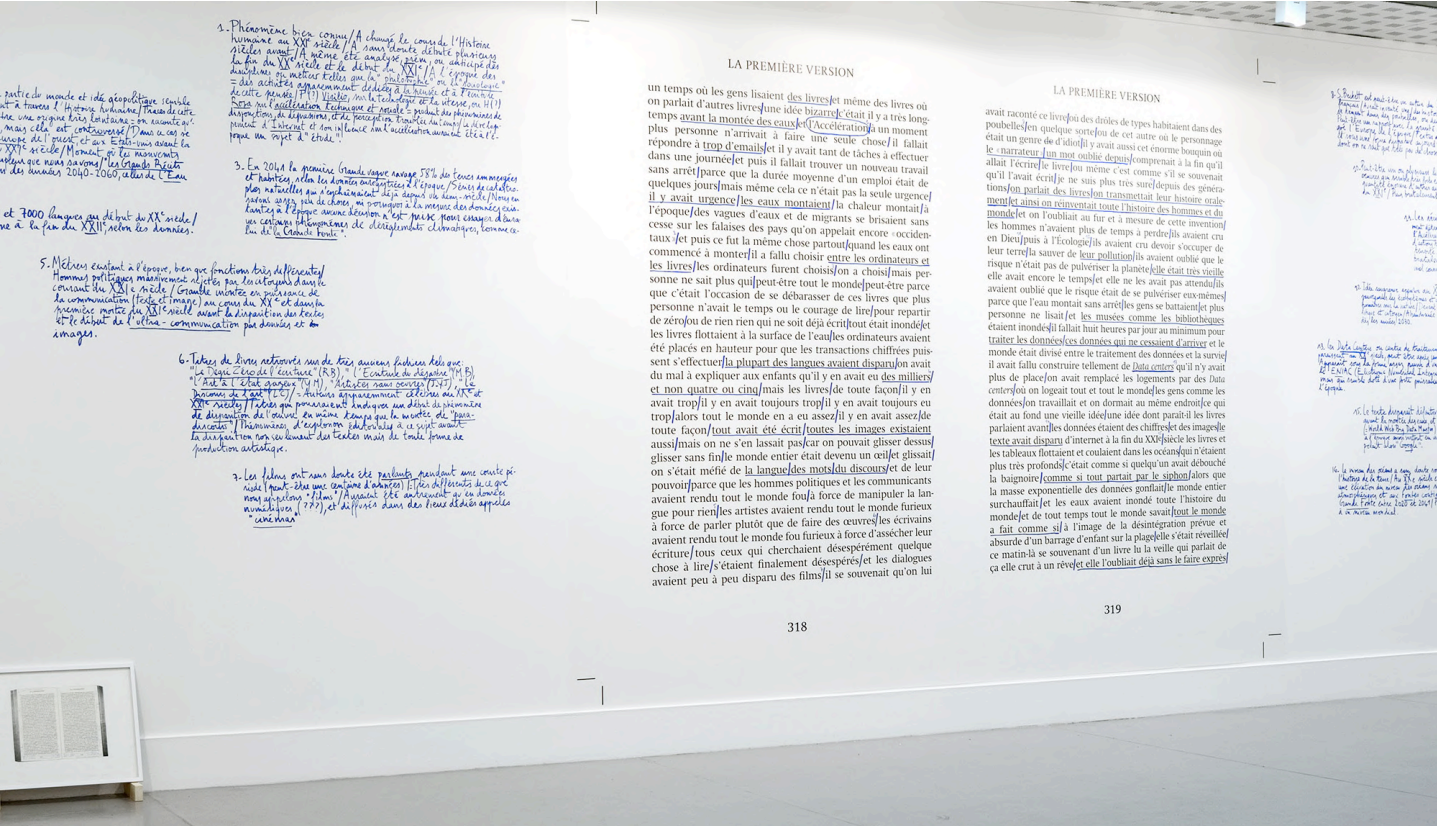 1. Phénomène bien connu/A changé le cours de l'Histoire
humaine au XXIe siècle/A sans doute débuté plusieurs
siècles avant/A même été analysé, prévu, ou anticipé dès
la fin du XXe siècle et le début du XXIe/A l'époque des
disciplines ou métiers telles que la "philosophie" ou la "sociologie"
= des activités apparemment dédiées à la pensée et à l'écriture
de cette pensée/P(?) Virilio, sur la technologie et la vitesse, ou H(?)
Rosa sur l'accélération technique et sociale = produit des phénomènes de
disjonctions, de dépressions, et de perception troublée du temps/Le dévelop-
pement d'Internet et son influence sur l'accélération auraient été à l'é-
poque un sujet d'étude!!
partie du monde et idée géopolitique semble
à travers l'Histoire humaine/Traces de cette
une origine très lointaine = on raconte qu'
mais cela est controversé/Dans ce cas se
de l'ouest, et aux Etats-unis avant la
XXIe siècle/Moment où les mouvements
que nous savons/"Les Grands Récits
des années 2040-2060, celles de l'Eau
et 7000 langues au début du XXe siècle/
à la fin du XXIIe selon les données.
3. En 2041 la première Grande vague ravage 58% des terres immergées
et habitées, selon les données enregistrées à l'époque/Séries de catastro-
phes naturelles qui s'enchaînaient déjà depuis un demi-siècle/Nous en
savons assez peu de choses, ni pourquoi à la mesure des données exis-
tantes à l'époque aucune décision n'est prise pour essayer d'enra-
yer certains phénomènes de dérèglements climatiques, comme ce-
lui de "la Grande Fonte".
5. Métiers existant à l'époque, bien que fonctions très différentes/
Hommes politiques massivement rejetés par les citoyens dans le
courant du XXIe siècle/Grande montée en puissance de
la communication (texte et image) au cours du XXe et dans la
première moitié du XXIe siècle avant la disparition des textes
et le début de l'ultra-communication par données et
images.
6. Titres de livre retrouvés sur de très anciens fichiers tels que:
"Le Degré Zéro de l'écriture" (R.B), "L'Ecriture du désastre" (M.B)
"L'Art à l'état gazeux" (Y.M), "Artistes sans œuvres" (J-Y.J), "Le
Discours de l'art" (LC)/= Auteurs apparemment célèbres au XXe et
XXIe siècles/Titres qui pourraient indiquer un début de phénomène
de disparition de l'œuvre en même temps que la montée de "para-
discours"/Phénomènes d'explosion éditoriales à ce sujet avant
la disparition non seulement des textes mais de toute forme de
production artistique.
7. Les films ont sans doute été parlants pendant une courte pé-
riode (peut-être une centaine d'années)/Très différents de ce que
nous appelons "films"/Auraient été autrement qu'en données
numériques (???), et diffusés dans des lieux dédiés appelés
"cinémas"
LA PREMIÈRE VERSION
un temps où les gens lisaient des livres/et même des livres où
on parlait d'autres livres/une idée bizarre/c'était il y a très long-
temps avant la montée des eaux/et l'Accélération/à un moment
plus personne n'arrivait à faire une seule chose/il fallait
répondre à trop d'emails/et il y avait tant de tâches à effectuer
dans une journée/et puis il fallait trouver un nouveau travail
sans arrêt/parce que la durée moyenne d'un emploi était de
quelques jours/mais même cela ce n'était pas la seule urgence/
il y avait urgence/les eaux montaient/la chaleur montait/à
l'époque/des vagues d'eaux et de migrants se brisaient sans
cesse sur les falaises des pays qu'on appelait encore « occiden-
taux »/et puis ce fut la même chose partout/quand les eaux ont
commencé à monter/il a fallu choisir entre les ordinateurs et
les livres/les ordinateurs furent choisis/on a choisi/mais per-
sonne ne sait plus qui/peut-être tout le monde/peut-être parce
que c'était l'occasion de se débarasser de ces livres que plus
personne n'avait le temps ou le courage de lire/pour repartir
de zéro/ou de rien rien qui ne soit déjà écrit/tout était inondé/et
les livres flottaient à la surface de l'eau/les ordinateurs avaient
été placés en hauteur pour que les transactions chiffrées puis-
sent s'effectuer/la plupart des langues avaient disparu/on avait
du mal à expliquer aux enfants qu'il y en avait eu des milliers/
et non quatre ou cinq/mais les livres/de toute façon/il y en
avait trop/il y en avait toujours trop/il y en avait toujours eu
trop/alors tout le monde en a eu assez/il y en avait assez/de
toute façon/tout avait été écrit/toutes les images existaient
aussi/mais on ne s'en lassait pas/car on pouvait glisser dessus/
glisser sans fin/le monde entier était devenu un œil/et glissait/
on s'était méfié de la langue/des mots/du discours/et de leur
pouvoir/parce que les hommes politiques et les communicants
avaient rendu tout le monde fou/à force de manipuler la lan-
gue pour rien/les artistes avaient rendu tout le monde furieux
à force de parler plutôt que de faire des œuvres/les écrivains
avaient rendu tout le monde fou furieux à force d'assécher leur
écriture/tous ceux qui cherchaient désespérément quelque
chose à lire/s'étaient finalement désespérés/et les dialogues
avaient peu à peu disparu des films/il se souvenait qu'on lui
318
LA PREMIÈRE VERSION
avait raconté ce livre/où des drôles de types habitaient dans des
poubelles/en quelque sorte/ou de cet autre où le personnage
était un genre de d'idiot/il y avait aussi cet énorme bouquin où
le « narrateur »/un mot oublié depuis/comprenait à la fin qu'il
allait l'écrire/le livre/ou même c'est comme s'il se souvenait
qu'il l'avait écrit/je ne suis plus très sure/depuis des généra-
tions/on parlait des livres/on transmettait leur histoire orale-
ment/et ainsi on réinventait toute l'histoire des hommes et du
monde/et on l'oubliait au fur et à mesure de cette invention/
les hommes n'avaient plus de temps à perdre/ils avaient cru
en Dieu/puis à l'Écologie/ils avaient cru devoir s'occuper de
leur terre/la sauver de leur pollution/ils avaient oublié que le
risque n'était pas de pulvériser la planète/elle était très vieille
elle avait encore le temps/et elle ne les avait pas attendu/ils
avaient oublié que le risque était de se pulvériser eux-mêmes/
parce que l'eau montait sans arrêt/les gens se battaient/et plus
personne ne lisait/et les musées comme les bibliothèques
étaient inondés/il fallait huit heures par jour au minimum pour
traiter les données/ces données qui ne cessaient d'arriver et le
monde était divisé entre le traitement des données et la survie/
il avait fallu construire tellement de Data centers/qu'il n'y avait
plus de place/on avait remplacé les logements par des Data
centers/où on logeait tout et tout le monde/les gens comme les
données/on travaillait et on dormait au même endroit/ce qui
était au fond une vieille idée/une idée dont parait-il les livres
parlaient avant/les données étaient des chiffres/et des images/le
texte avait disparu d'internet à la fin du XXIe/siècle les livres et
les tableaux flottaient et coulaient dans les océans/qui n'étaient
plus très profonds/c'était comme si quelqu'un avait débouché
la baignoire/comme si tout partait par le siphon/alors que
la masse exponentielle des données gonflait/le monde entier
surchauffait/et les eaux avaient inondé toute l'histoire du
monde/et de tout temps tout le monde savait/tout le monde
a fait comme si/à l'image de la désintégration prévue et
absurde d'un barrage d'enfant sur la plage/elle s'était réveillée/
ce matin-là se souvenant d'un livre lu la veille qui parlait de
ça elle crut à un rêve/et elle l'oubliait déjà sans le faire exprès/
319